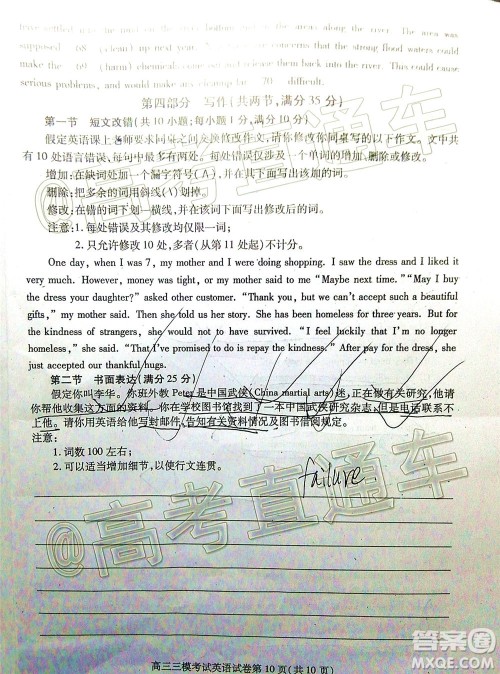 have settled into the homes and in the areas along the river. The area was
supposed 68 (clean) up by concerns that the strong flood waters could
make the 69 (harm) chemicals appear back into the river. This could cause
serious problems, and would make any cleanup be 70 difficult.
第四部分 写作(共两节,满分35分)
第一节 短文改错(共10小题;每小题1分,满分10分)
假定英语课上老师要求同桌之间交换修改作文,请你修改你同桌写的以下作文。文中共
有10处语言错误,每句中最多有两处。每处错误仅涉及一个单词的增加、删除或修改。
增加:在缺词处加一个漏字符号(∧),并在其下面写出该加的词。
删除:把多余的词用斜线(\)划掉。
修改:在错的词下划一横线,并在该词下面写出修改后的词。
注意:1.每处错误及其修改均仅限一词;
2.只允许修改10处,多者(从第11处起)不计分。
One day, when I was 7, my mother and I were doing shopping. I saw the dress and I liked it
very much. However, money was tight, or my mother told me "Maybe next time." "May I buy
the dress your daughter?" asked other customer. "Thank you, but we can't accept such a beautiful
gifts," my mother said. Then she told us her story. She has been homeless for three years. But for
the kindness of strangers, she would not to have survived. "I feel luckily that I'm no longer
homeless," she said. "That I've promised to do is repay the kindness." After pay for the dress, she
just accepted our thankful hugs.
第二节 书面表达(满分25分)
假定你叫李华。你班外教Peter是中国武侠(China martial arts)迷,正在做有关研究,他请
你帮他收集这方面的资料。你在学校图书馆找到了一本中国武侠研究杂志,但是电话联系不
上他。请你用英语给他写封邮件,告知有关资料情况及图书借阅规定。
注意:
1.词数100左右;
2.可以适当增加细节,以使行文连贯。
failure
@高考直通车
高三三模考试英语试卷第10页(共10页)